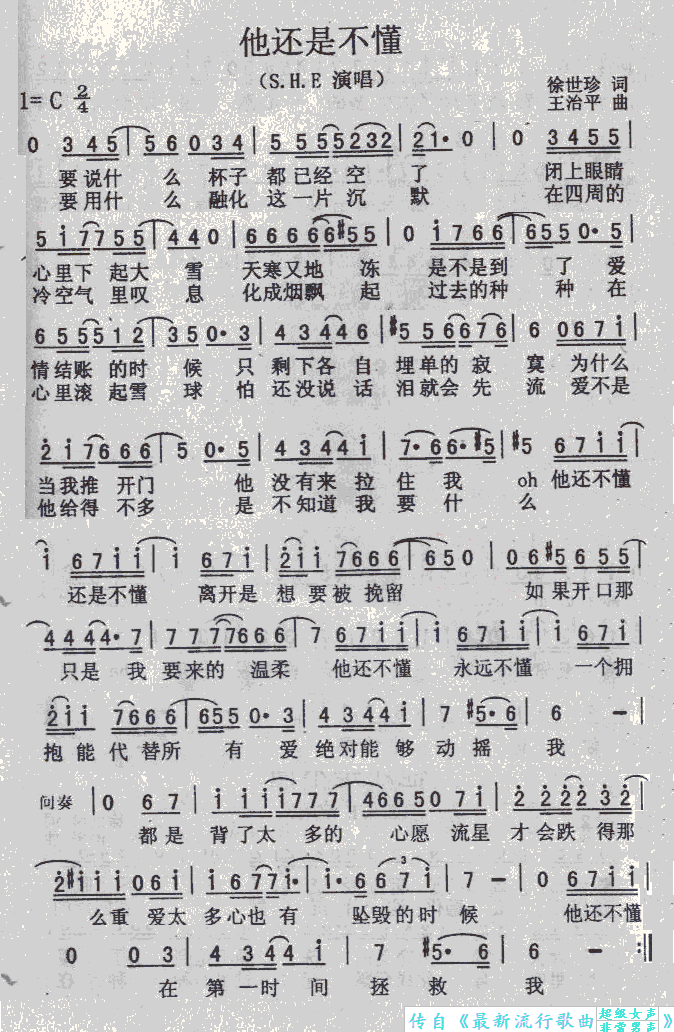 他还是不懂
(S.H.E 演唱)
1=C 2/4
徐世珍 词
王治平 曲
0 345 | 56034 | 5555232 | 21·0 | 0 3455 |
要说什 么 杯子 都已经 空 了 闭上眼睛
要用什 么 融化 这一片 沉 默 在四周的
5i7755 | 440 | 66666#55 | 0 i766 | 6550·5 |
心里下 起大 雪 天寒又地 冻 是不是到 了 爱
冷空气 里叹 息 化成烟飘 起 过去的种 种 在
6555512 | 350·3 | 43446 | #556676 | 6 067i |
情结账 的时 候 只 剩下各 自 埋单的 寂 寞 为什么
心里滚 起雪 球 怕 还没说 话 泪就会 先 流 爱不是
2i7666 | 5 0·5 | 4344i | 7·66·#5 | #5 67ii |
当我推 开门 他 没有来 拉 住 我 oh 他还不懂
他给得 不多 是 不知道 我 要 什 么
i 67ii | i 67i | 2ii 7666 | 650 | 06#5655 |
还是不懂 离开是 想要被 挽留 如果开口那
4444·7 | 7777666 | 7 67ii | i 67ii | i 67i |
只是 我 要来的 温柔 他还不懂 永远不懂 一个拥
2ii 7666 | 6550·3 | 4344i | 7 #5·6 | 6 － |
抱能 代替所 有 爱 绝对能 够 动摇 我
间奏 | 0 67 | i iii777 | 466507i | 2 22232 |
都是 背了太 多的 心愿 流星 才会跌 得那
2#iii06i | i677i· | i·667i | 7 － | 0 67ii |
3
么重 爱太 多心也 有 坠毁的时 候 他还不懂
0 03 | 4344i | 7 #5·6 | 6 － :||
在 第一时 间 拯 救 我
传自《最新流行歌曲 超级女声 非常男声》